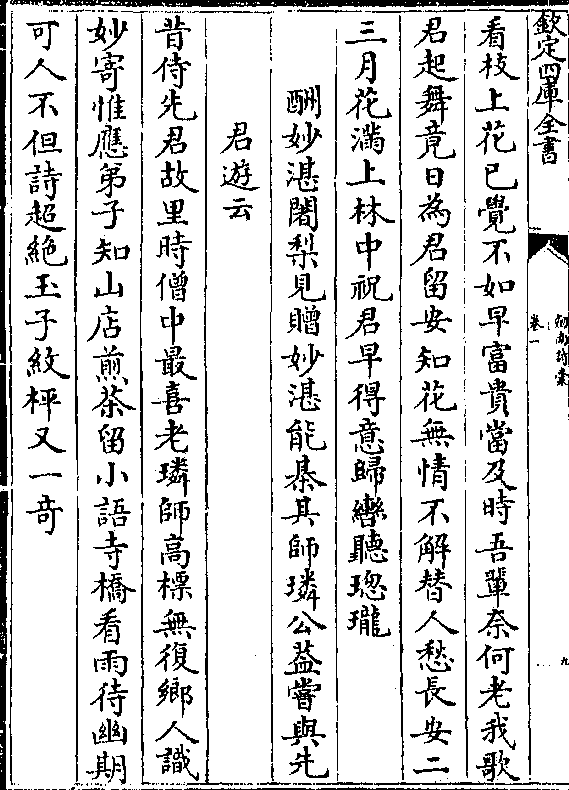 欽定四庫全書
卷一
九
看枝上花已覺不如早富貴當及時吾輩奈何老我歌
君起舞竟日為君留安知花無情不解替人愁長安二
三月花滿上林中祝君早得意歸轡聽璁瓏
酬妙湛闍梨見贈妙湛能棊其師璘公葢嘗與先
君遊云
昔侍先君故里時僧中最喜老璘師高標無復鄉人識
妙寄惟應弟子知山店煎茶留小語寺橋看雨待幽期
可人不但詩超絶玉子紋枰又一奇